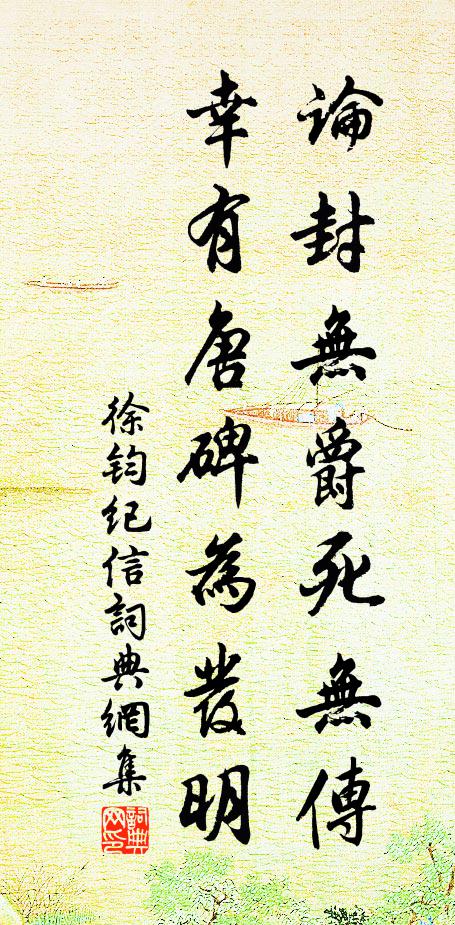 論封無爵死無傳
幸有唐碑為發明
徐鈞紀信詞典網集
詞典網印